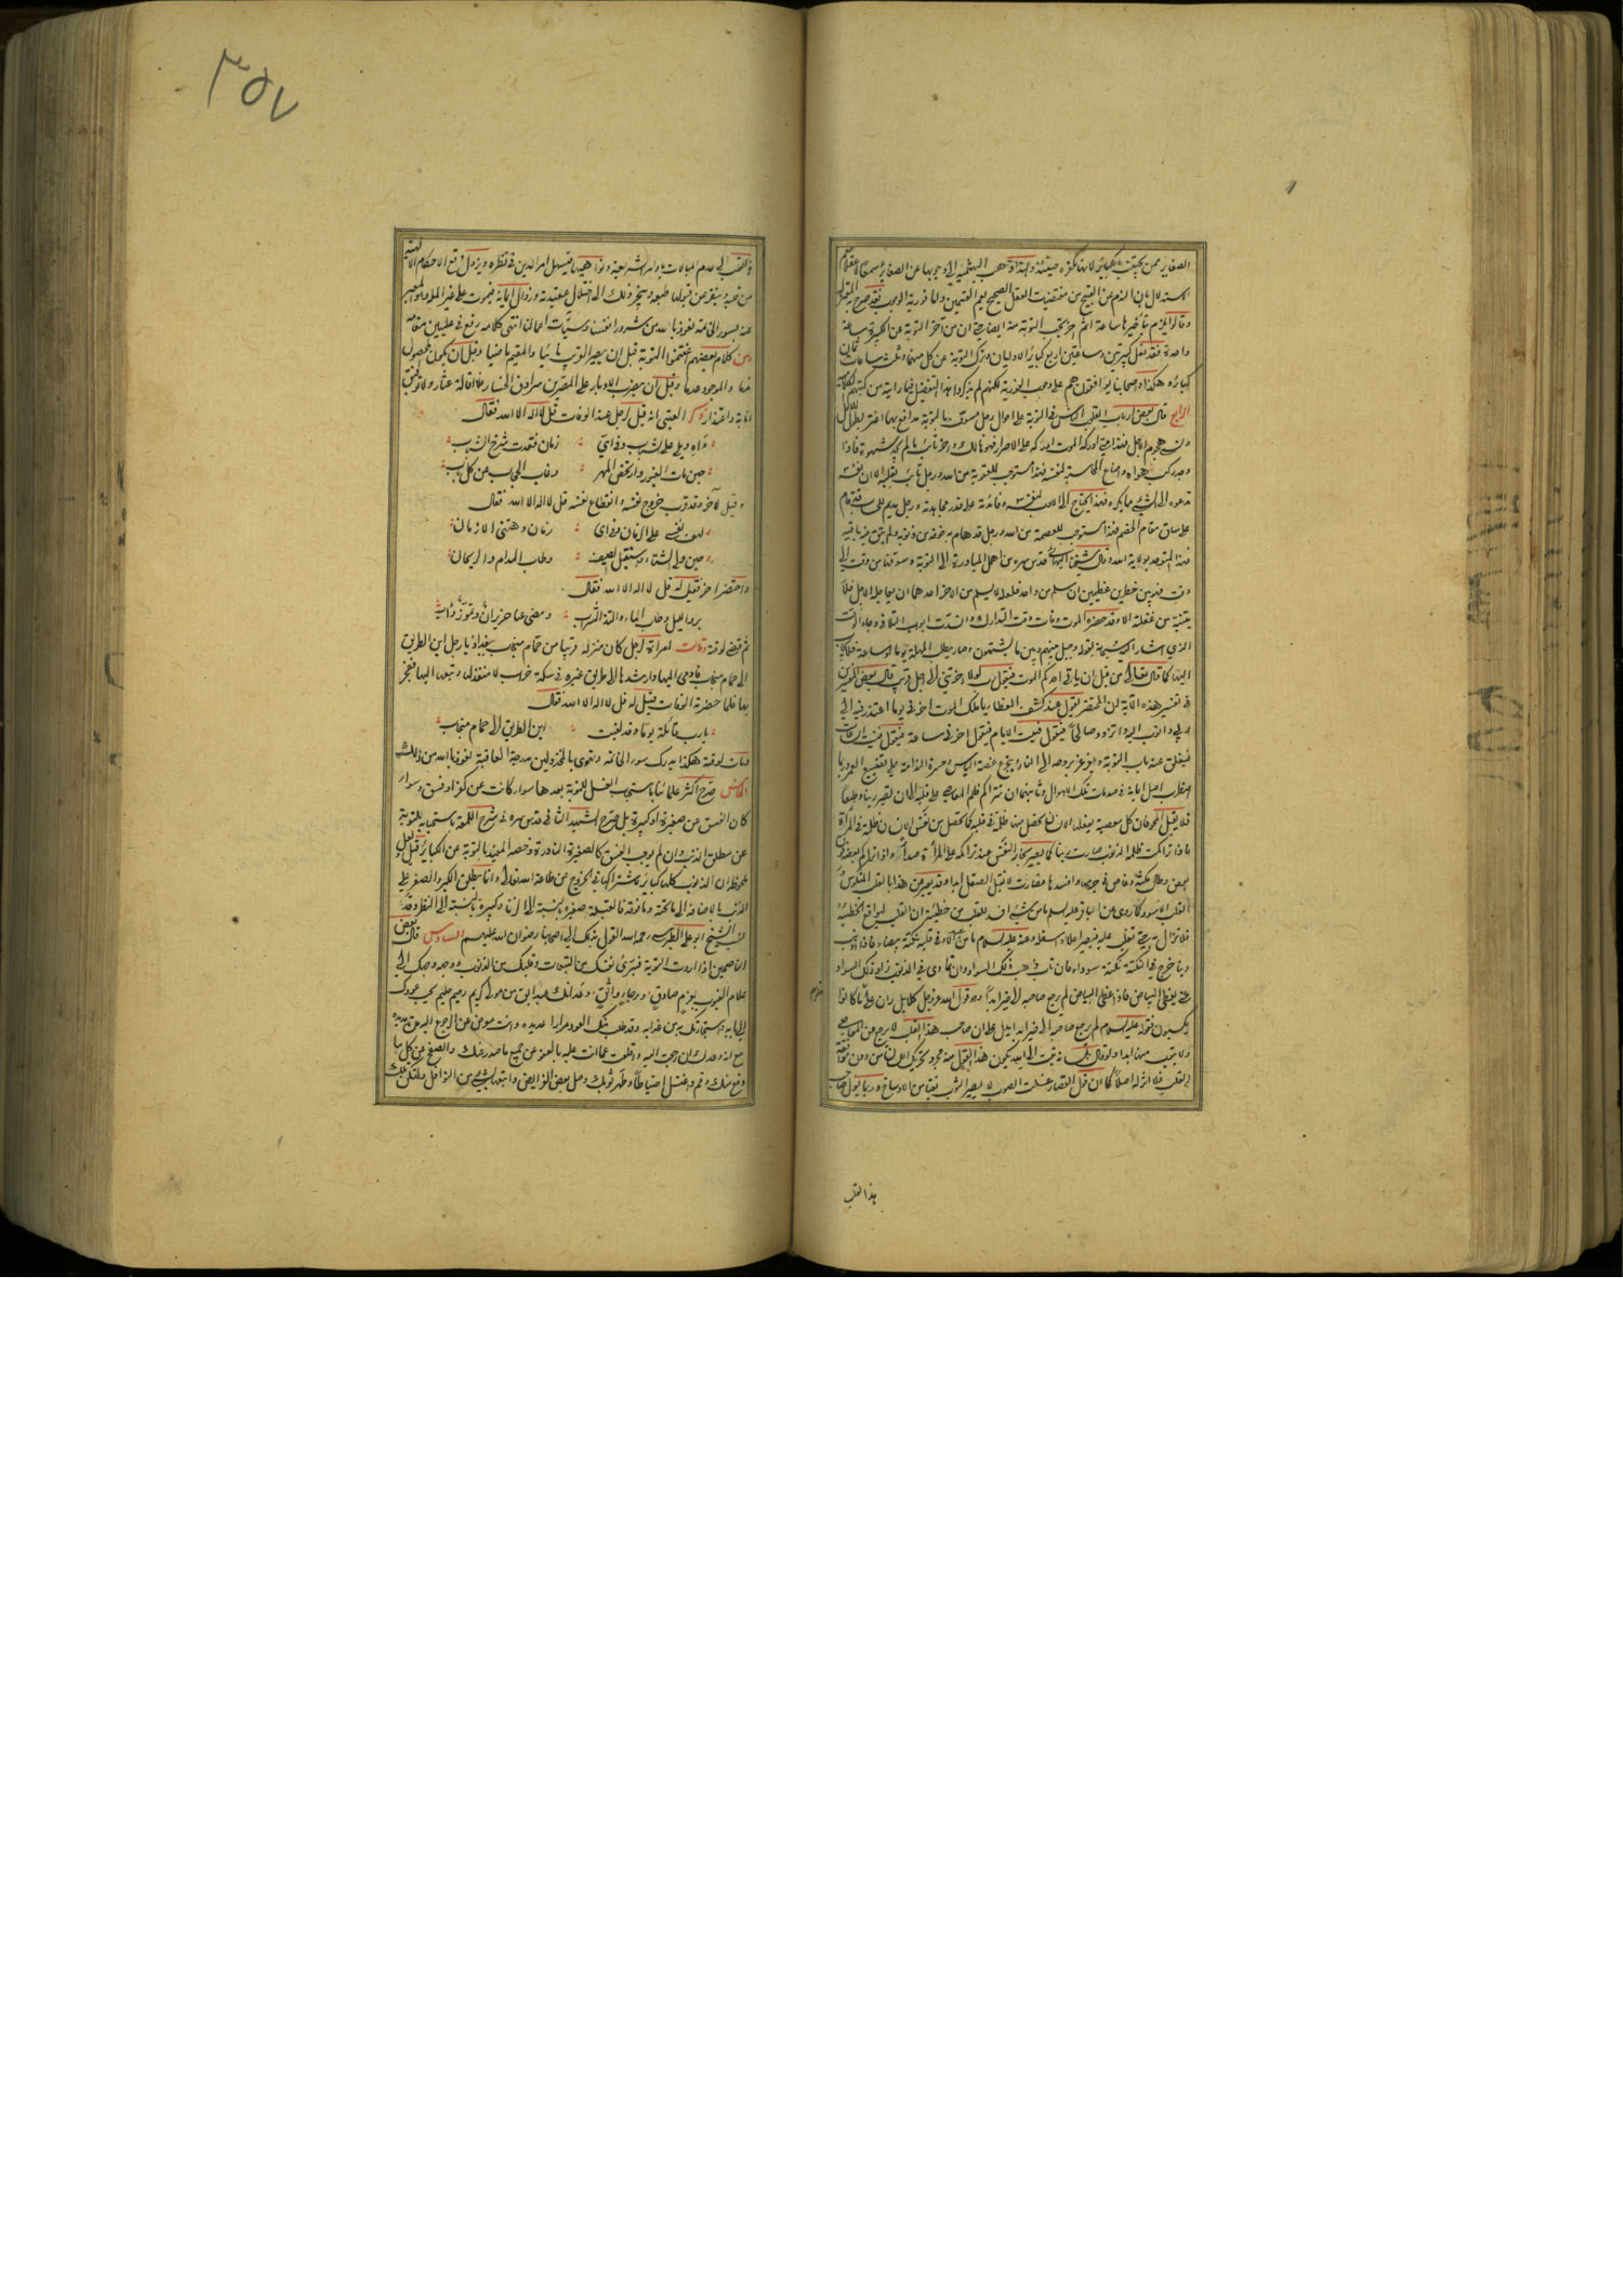 الصغاير ممن يجتنب الكبائر لانها مكفرة حينئذ ولهذا ذهب البهشمية الى وجوبها عن الصغاير سمعا لا عقلا
الاستدلال بان الندم عن القبيح من مقتضيات العقل الصحيح يعم القسمين واما فورية الوجوب فقد صرح به المعتزلة
وقالوا يلزم بتأخيرها ساعة اثم آخر تجب التوبة منه ايضا حتى ان من اخر التوبة عن الكبيرة ساعة
واحدة فقد فعل كبيرتين وساعتين اربع كبائر الاوليان وترك التوبة عن كل منهما وثلث ساعات ثمان
كبائر وهكذا واصحابنا يوافقونهم على وجوب الفورية لكنهم لم يذكروا هذا التفصيل فيما رايته من كتبهم الكلامية
الرابع قال بعض ارباب القلوب الناس في التوبة على احوال رجل مسوف بالتوبة مدافع بها اغتر بطول الامل
ونسي هجوم الاجل فهذا متى ادركه الموت ادركه على الاصرار فهو هالك وآخر تائب ما لم يجد شهوة فاذا
وجد ركب هواه واضاع المحاسبة لنفسه فهذا مستوجب للعقوبة من الله ورجل تائب بقلبه الا ان نفسه
تدعوه الى الشيء مما يكره فهذا يحتاج الى الادب لنفسه وفائدته على قدر مجاهدته ورجل مديم للحساب قد قام
على ساق مقام الخصم فهذا مستوجب للعصمة من الله ورجل قد هام به خوفه من ذنوبه ولم يبق فيه باقية
فهذا المتوحد بولاية الله وقال شيخنا البهائي قدس سره من اهمل المبادرة الى التوبة وسوفها من وقت الى
وقت فهو بين خطرين عظيمين ان سلم من واحد فلعله لا يسلم من الاخر احدهما ان يعاجله الاجل فلا
يتنبه من غفلته الا وقد حضره الموت وفات وقت التدارك وانسدت ابواب التلافي وجاء الوقت
الذي اشار اليه سبحانه بقوله وحيل بينهم وبين ما يشتهون وصار يطلب المهلة يوما او ساعة فلا يجاب
اليها كما قال تعالى من قبل ان ياتي احدكم الموت فيقول رب لولا اخرتني الى اجل قريب قال بعض المفسرين
في تفسير هذه الآية ان المحتضر يقول عند كشف الغطاء يا ملك الموت اخرني يوما اعتذر فيه الى
ربي واتوب اليه واتزود صالحا فيقول فنيت الايام فيقول اخرني ساعة فيقول فنيت الساعات
فيغلق عنه باب التوبة ويغرغر بروحه الى النار ويتجرع غصة اليأس وحسرة الندامة على تضييع العمر وربما
اضطرب اصل ايمانه في صدمات تلك الاهوال وثانيهما ان تتراكم ظلم المعاصي على قلبه الى ان تصير رينا وطبعا
فلا يقبل المحو فان كل معصية يفعلها الانسان تحصل منها ظلمة في قلبه كما تحصل من نفس الانسان ظلمة في المرآة
فاذا تراكمت ظلمة الذنوب صارت رينا كما يصير بخار النفس عند تراكمه على المرآة صدأ واذا تراكم بعضه فوق
بعض وطال مكثه وغاص في جرمها وافسدها فصارت لا تقبل الصقل ابدا وقد يعبر عن هذا بالقلب المنكوس و
القلب الاسود كما روي عن الباقر عليه السلم ما من شيء افسد للقلب من خطيئته ان القلب ليواقع الخطيئة
فلا تزال به حتى تغلب عليه فيصير اعلاه اسفله وعنه عليه السلام ما من عبد الا وفي قلبه نكتة بيضاء فاذا اذنب
ذنبا خرج في النكتة نكتة سوداء فان تاب ذهب ذلك السواد وان تمادى في الذنوب زاد ذلك السواد
حتى يغطي البياض فاذا غطى البياض لم يرجع صاحبه الى خير ابدا وهو قول الله عز وجل كلا بل ران على قلوبهم ما كانوا
يكسبون فقوله عليه السلام لم يرجع صاحبه الى خير ابدا يدل على ان صاحب هذا القلب لا يرجع عن المعاصي
ولا يتوب منها ابدا ولو قال بلسانه تبت الى الله يكون هذا القول منه مجرد تحريك اللسان من دون موافقة
القلب فلا اثر له اصلا كما ان قول القصار غسلت الثوب لا يصير الثوب نقيا من الاوساخ وربما يؤل صاحب
هذا القلب
٣٥٧
القلب الى عدم المبالات باوامر الشريعة ونواهيها فيسهل امر الدين في نظره ويزول وقع الاحكام الالهية
من قلبه وينفر عن قبولها طبعه وينجر ذلك الى اختلال عقيدته وزوال ايمانه فيموت على غير الملة وهو المعبر
عنه بسوء الخاتمة نعوذ بالله من شرور انفسنا وسيئات اعمالنا انتهى كلامه رفع في عليين مقامه
ومن كلام بعضهم اغتنموا التوبة قبل ان يصير القريب نائيا والمقيم ماضيا وقبل ان يكون المحصول
ندما والموجود عدما وقبل ان يضرب الادبار على المصرين سرادق الخسار فلا اقالة عثار ولا توفيق
انابة واعتذار ذكر العتبي انه قيل لرجل عند الوفات قل لا اله الا الله فقال
آه ويلي على الشباب وفي اي زمان فقدت شرخ الشباب
حين مات الغيور وارتخص المهر وغاب الحجاب عن كل باب
وقيل لآخر وقد قرب خروج نفسه وانقطاع نفسه قل لا اله الا الله فقال
لهف نفسي على الزمان وفي اي زمان دهتني الازمان
حين ولى الشتاء واستقبل الصيف وطاب المدام والريحان
واحتضر آخر فقيل له قل لا اله الا الله فقال
برد الليل وطاب الماء والتذ الشراب ومضى عنا حزيران وتموز وآب
ثم قضى لوقته وقالت امراة لرجل كان منزله قريبا من حمام منجاب ببغداد يا رجل اين الطريق
الى حمام منجاب فاومى اليها وارشدها الى طريق غيره في سكة خراب لا منفذ لها وتبعها اليها ففجر
بها فلما حضرته الوفات قيل له قل لا اله الا الله فقال
يا رب قائلة يوما وقد لغبت اين الطريق الى حمام منجاب
ومات لوقته هكذا يدرك سوء الخاتمة وتهوى بالمخذولين مدرجة العاقبة نعوذ بالله من ذلك
الخامس صرح اكثر علمائنا باستحباب الغسل للتوبة بعدها سواء كانت عن كفر او فسق وسواء
كان الفسق عن صغيرة او كبيرة بل صرح الشهيد الثاني قدس سره في شرح اللمعة باستحبابه للتوبة
عن مطلق الذنب وان لم يوجب الفسق كالصغيرة النادرة وخصه المفيد بالتوبة عن الكبائر قيل ولعل
ملحوظه ان الذنوب كلها كبائر لاشتراكها في الخروج عن طاعة الله تعالى وانما يطلق الكبر والصغر على
الذنب بالاضافة الى ما تحته وما فوقه فالقبلة صغيرة بالنسبة الى الزنا وكبيرة بالنسبة الى النظر وقد
نسب الشيخ ابو علي الطبرسي رحمه الله القول بذلك الى اصحابنا رضوان الله عليهم السادس قال بعض
الناصحين اذا اردت التوبة فبرئ نفسك من التبعات وقلبك من الذنوب ووجه وجهك الى
علام الغيوب بعزم صادق ورجاء واثق وعد انك عبد ابق من مولى كريم رحيم حليم يحب عودك
الى بابه واستجارتك به من عذابه وقد طلب منك العود مرارا عديدة وانت معرض عن الرجوع اليه مدة مديدة
مع انه وعدك ان رجعت اليه واقلعت عما انت عليه بالعفو عن جميع ما صدر عنك والصفح عن كل ما
وقع منك وقم واغتسل احتياطا وطهر ثوبك وصل بعض الفرايض واتبعها بشيء من النوافل ولتكن تلك